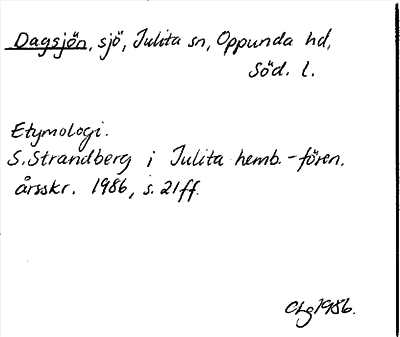 Dagsjön, sjö, Julita sn, Oppunda hd,
Söd. l.
Etymologi.
S. Strandberg i Julita hemb.-fören.
årsskr. 1986, s. 21ff.
1986.